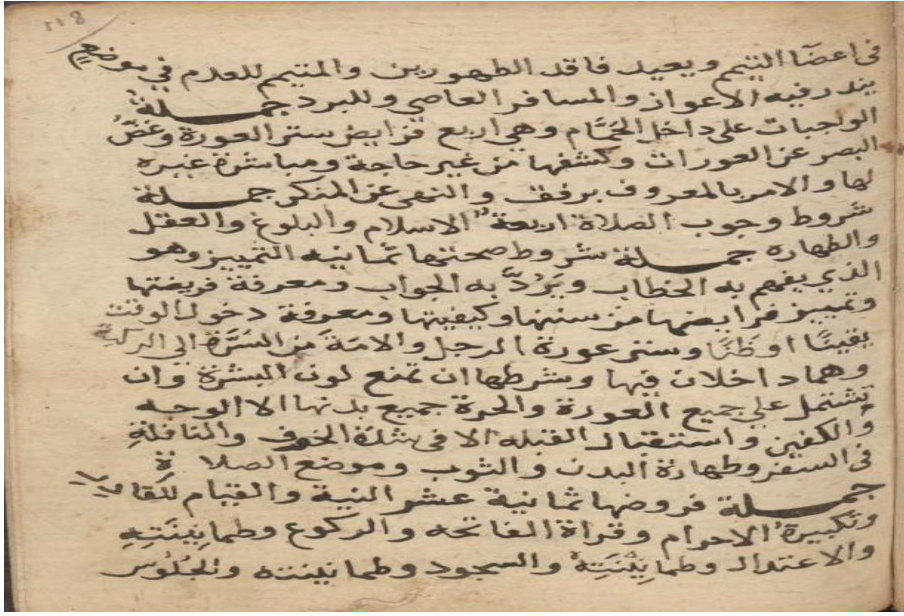 ١١٨
في اعضآ التيمم ويعيد فاقد الطهورين والمتيمم للعدم في موضع
يندر فيه الاعواز والمسافر العاصي وللبرد جملة
الواجبات على داخل الحَمَّام وهي اربع فرايض ستر العورة وغَضُّ
البصر عن العورات وكشفها من غير حاجة ومباشرة غيره
لها والامر بالمعروف برفق والنهى عن المنكر جملة
شروط وجوب الصلاة اربعة الاسلام والبلوغ والعقل
والطهارة جملة شروط صحتها ثمانيه التمييز وهو
الذي يفهم به الخطاب ويَرُدُّ به الجواب ومعرفة فريضتها
وتمييز فرايضها من سننها وكيفيتها ومعرفة دخول الوقت
يقينًا او ظنًا وستر عورة الرجل والامة من السُّرَّة الى الركبة
وهما داخلان فيها وشرطها ان تمنع لون البشرة وان
تشتمل على جميع العورة والحرة جميع بدنها الا الوجه
والكفين واستقبال القبله الا في شدة الخوف والنافلة
في السفر وطهارة البدن والثوب وموضع الصلاة
جملة فروضها ثمانية عشر النية والقيام للقادر
وتكبيرة الاحرام وقراة الفاتحه والركوع وطمانِينَتِهِ
والاعتدال وطمانِيْنَتِهُ والسجود وطمانينته والجُلُوس